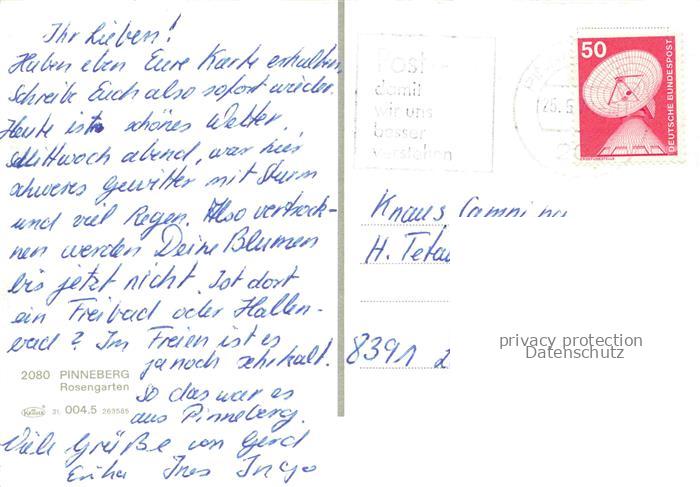 Ihr Lieben!
Haben eben Eure Karte erhalten,
schreibe Euch also sofort wieder.
Heute ist schönes Wetter.
Mittwoch abend, war hier
schweres Gewitter mit Sturm
und viel Regen. Also vertrock-
nen werden Deine Blumen
bis jetzt nicht. Ist dort
ein Freibad oder Hallen-
bad? Im Freien ist es
ja noch sehr kalt.
So das war es
aus Pinneberg.
Viele Grüße von Gerd
Erika Ines Ingo
2080 PINNEBERG
Rosengarten
Krüger 21. 004.5 263585
Post-
damit
wir uns
besser
verstehen
25.5
50
DEUTSCHE BUNDESPOST
ERDEFUNKSTELLE
Knaus Camping
H. Tetau
8391
privacy protection
Datenschutz